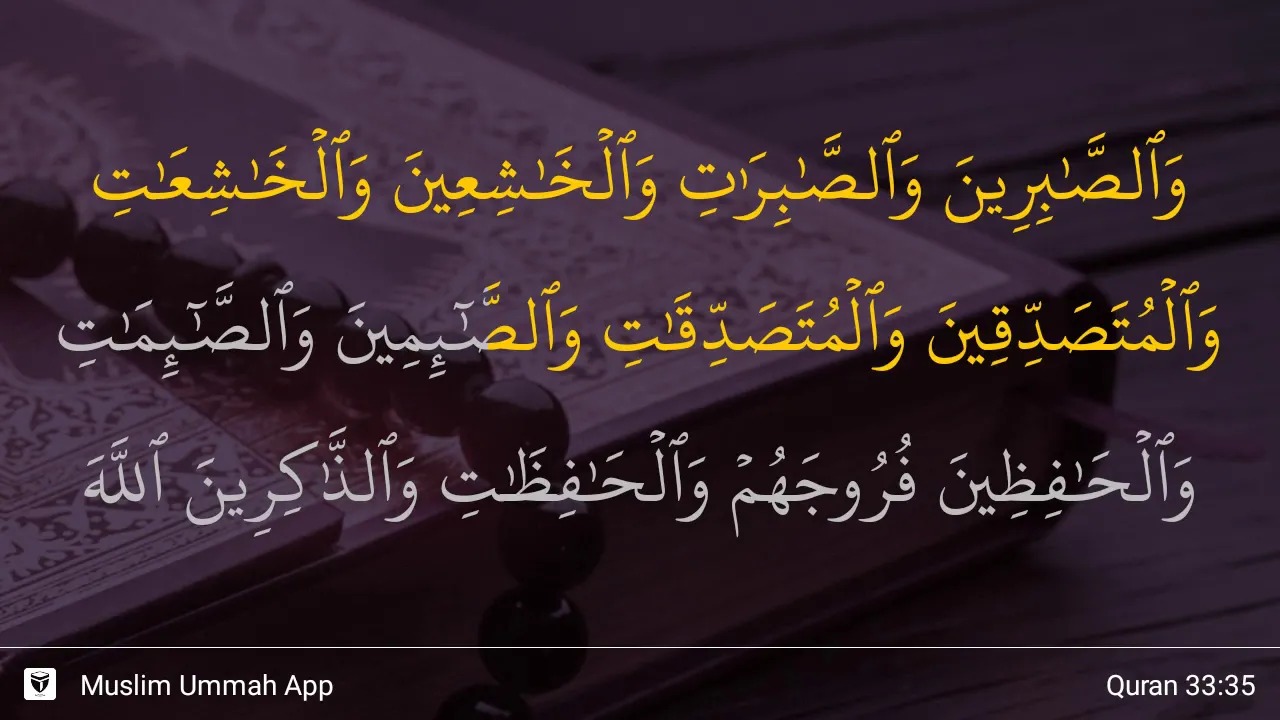 وَٱلصَّـٰبِرِينَ وَٱلصَّـٰبِرَٰتِ وَٱلْخَـٰشِعِينَ وَٱلْخَـٰشِعَـٰتِ
وَٱلْمُتَصَدِّقِينَ وَٱلْمُتَصَدِّقَـٰتِ وَٱلصَّـٰٓئِمِينَ وَٱلصَّـٰٓئِمَـٰتِ
وَٱلْحَـٰفِظِينَ فُرُوجَهُمْ وَٱلْحَـٰفِظَـٰتِ وَٱلذَّٰكِرِينَ ٱللَّهَ
Muslim Ummah App
Quran 33:35